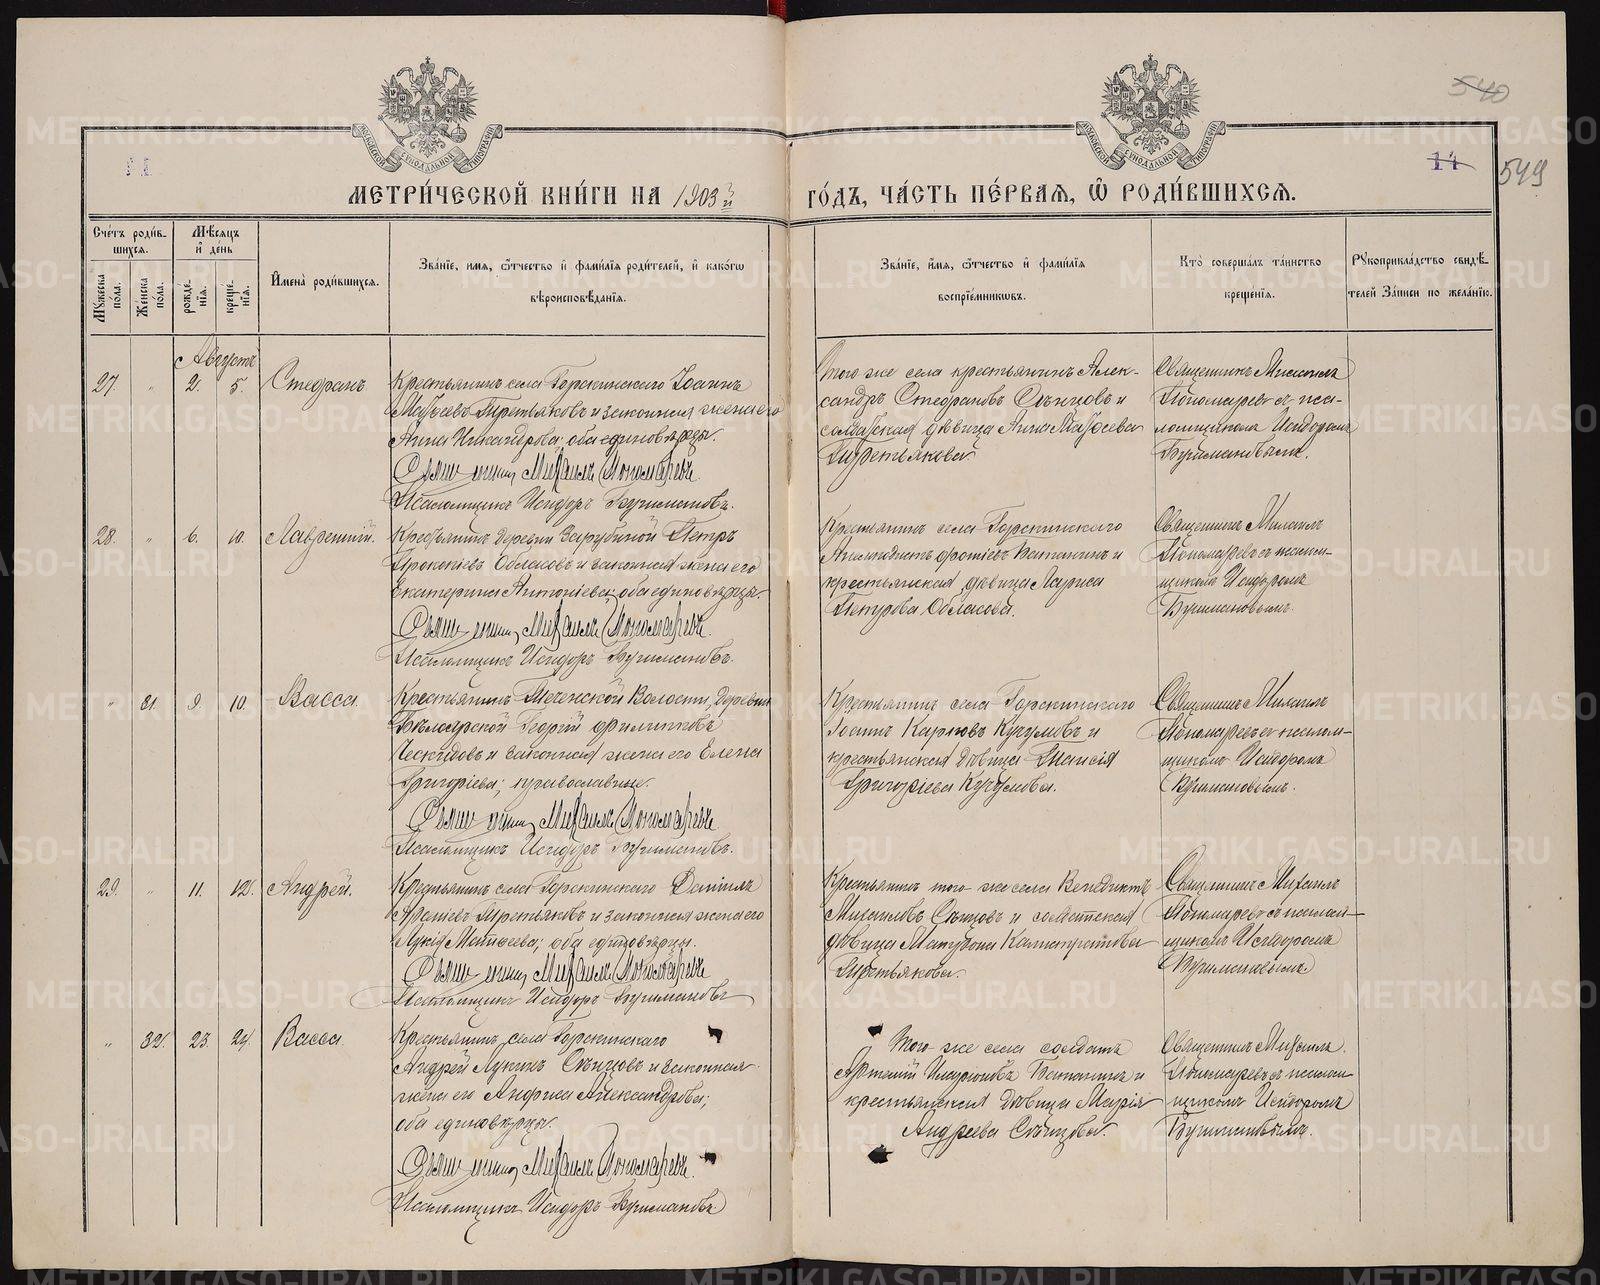 540
14
549
МЕТРИ́ЧЕСКОЙ КНИ́ГИ НА 1903й ГО́ДЪ, ЧА́СТЬ ПЕ́РВАЯ, Ѽ РОДИ́ВШИХСЯ.
Сче́тъ роди́в-
шихся.
Мѣ́сяцъ
и҆ де́нь
Мꙋ́жеска
по́ла.
Же́нска
по́ла.
рожде́-
нїѧ.
креще́-
нїѧ.
И҆мена̀ роди́вшихся.
Зва́нїе, и҆́мя, ѻ҆́тчество и҆ фами́лїѧ роди́телей, и҆ како́гѡ
вѣроисповѣ́данїѧ.
Зва́нїе, и҆́мя, ѻ҆́тчество и҆ фами́лїѧ
воспрїе́мникѡвъ.
Кто̀ соверша́лъ та́инство
креще́нїѧ.
Рꙋкоприкла́дство свидѣ́-
телей За́писи по жела́нїю.
Августъ
27. " 2. 5. Стефанъ.
Крестьянинъ села Горскинскаго Іоаннъ
Матѳеевъ Третьяковъ и законная жена его
Анна Никандрова; оба единовѣрцы.
Священникъ Михаилъ Пономаревъ.
Псаломщикъ Исидоръ
Того же села крестьянинъ Алек-
сандръ Стефановъ Сѣнцовъ и
солдатская дѣвица Анна Матѳеева
Третьякова.
Священникъ Михаилъ
Пономаревъ съ пса-
ломщикомъ Исидоромъ
28. " 6. 10. Лаврентій.
Крестьянинъ деревни Зарубиной Петръ
Прокопіевъ Обласовъ и законная жена его
Екатерина Антоніева; оба единовѣрцы.
Священникъ Михаилъ Пономаревъ.
Псаломщикъ Исидоръ
Крестьянинъ села Горскинскаго
и
крестьянская дѣвица Лариса
Петрова Обласова.
Священникъ Михаилъ
Пономаревъ съ псалом-
щикомъ Исидоромъ
" 31. 9. 10. Васса.
Крестьянинъ Теченской Волости, деревни
Бѣлоярской Георгій Филипповъ
и законная жена его Елена
Григоріева; православные.
Священникъ Михаилъ Пономаревъ
Псаломщикъ Исидоръ
Крестьянинъ села Горскинскаго
Іоаннъ Карповъ и
крестьянская дѣвица Таисія
Григоріева
Священникъ Михаилъ
Пономаревъ съ псалом-
щикомъ Исидоромъ
29. " 11. 12. Андрей.
Крестьянинъ села Горскинскаго Даніилъ
Третьяковъ и законная жена его
Лукія Матѳеева; оба единовѣрцы.
Священникъ Михаилъ Пономаревъ
Псаломщикъ Исидоръ
Крестьянинъ того же села Венедиктъ
Михаиловъ Сѣнцовъ и солдатская
дѣвица Матрона Калистратова
Третьякова.
Священникъ Михаилъ
Пономаревъ съ псалом-
щикомъ Исидоромъ
" 32. 23. 24. Васса.
Крестьянинъ села Горскинскаго
Андрей Лукинъ Сѣнцовъ и законная
жена его Александрова;
оба единовѣрцы.
Священникъ Михаилъ Пономаревъ.
Псаломщикъ Исидоръ
Того же села солдатъ
Артемій Иларіоновъ и
крестьянская дѣвица Марія
Андреева Сѣнцова.
Священникъ Михаилъ
Пономаревъ съ псалом-
щикомъ Исидоромъ
METRIKI.GASO-URAL.RU